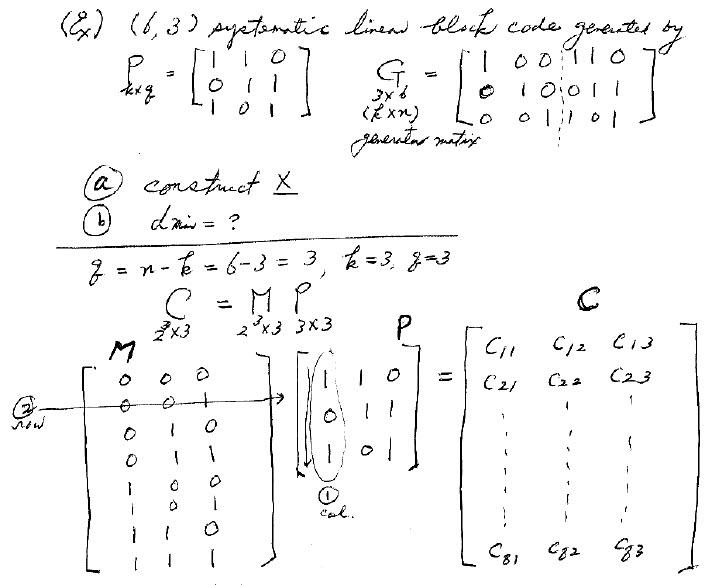 (Ex) (6,3) systematic linear block code generated by
P k×q = [ 1 1 0
0 1 1
1 0 1 ]
G 3×6 (k×n) generator matrix = [ 1 0 0 1 1 0
0 1 0 0 1 1
0 0 1 1 0 1 ]
(a) construct X
(b) dmin = ?
q = n - k = 6 - 3 = 3, k = 3, q = 3
C = M P
2³×3 2³×3 3×3
M P = C
0 0 0
0 0 1
0 1 0
0 1 1
1 0 0
1 0 1
1 1 0
1 1 1
② row
1 1 0
0 1 1
1 0 1
① col.
C11 C12 C13
C21 C22 C23
C81 C82 C83